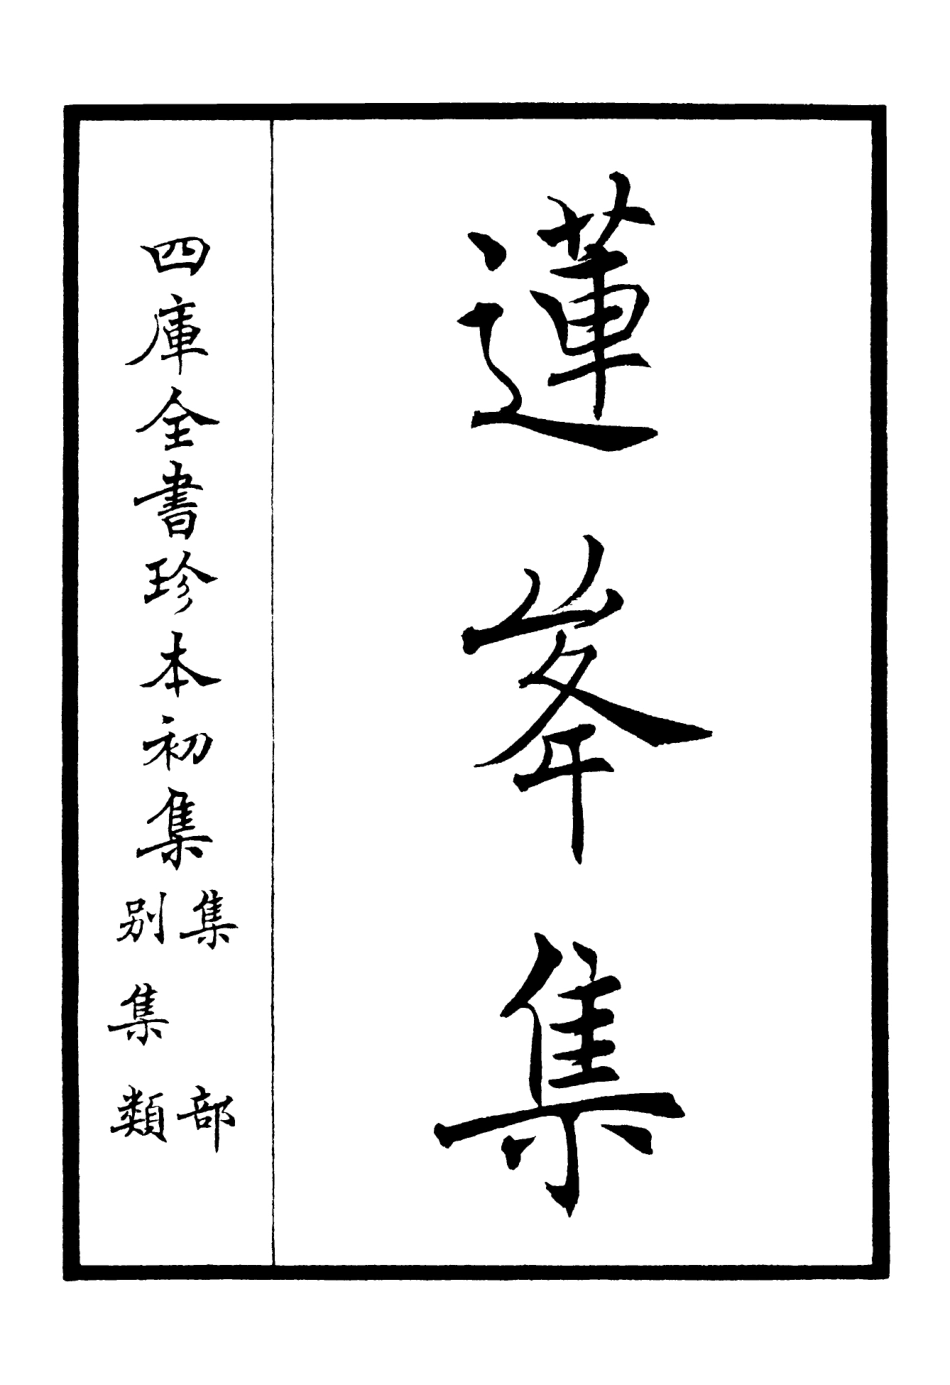 蓮峯集
四庫全書珍本初集
集部
別集類